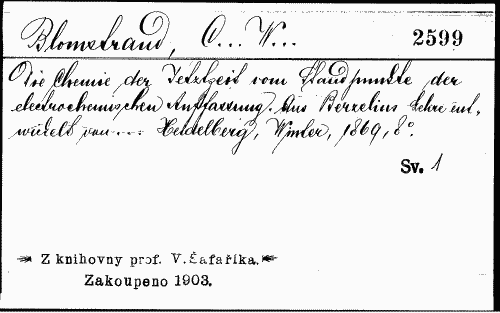 Blomstrand, C... W... 2599
Die Chemie der Jetztzeit vom Standpunkte der
electrochemischen Auffassung. Aus Berzelius Lehre ent-
wickelt von ... Heidelberg, Winter, 1869, 8°.
Sv. 1
Z knihovny prof. V. Šafaříka.
Zakoupeno 1903.